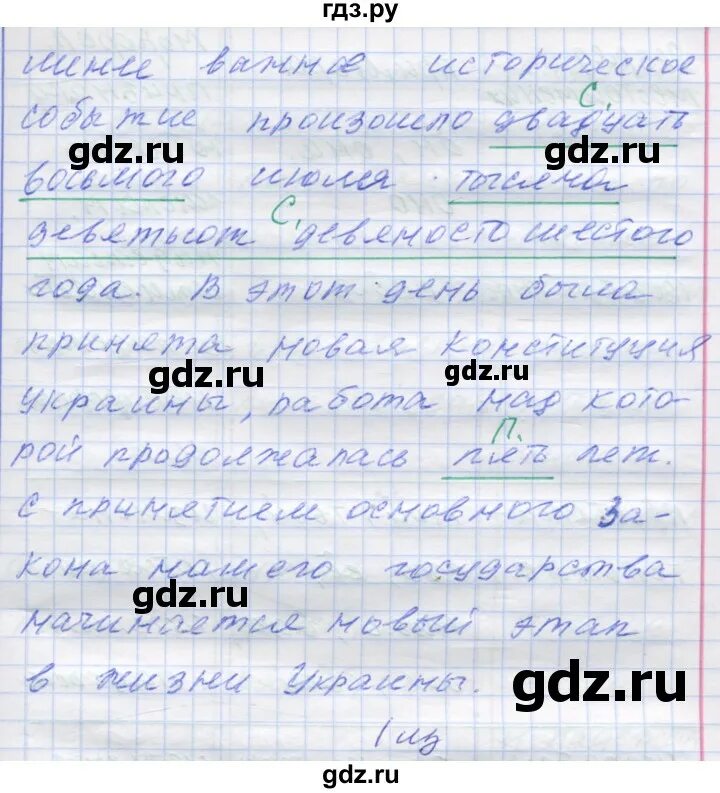 гдз.ру
шине важное историческое
С.
событие произошло двадцать
gdz.ru gdz.ru
восьмого июля тысяча
С.
девятьсот девяносто шестого
gdz.ru
года. В этот день была
принята новая Конституция
gdz.ru gdz.ru
Украины, работа над кото-
П.
рой продолжалась пять лет.
gdz.ru
С принятием основного за-
кона нашего государства
gdz.ru
начинается новый этап
в жизни Украины.
gdz.ru
gdz.ru